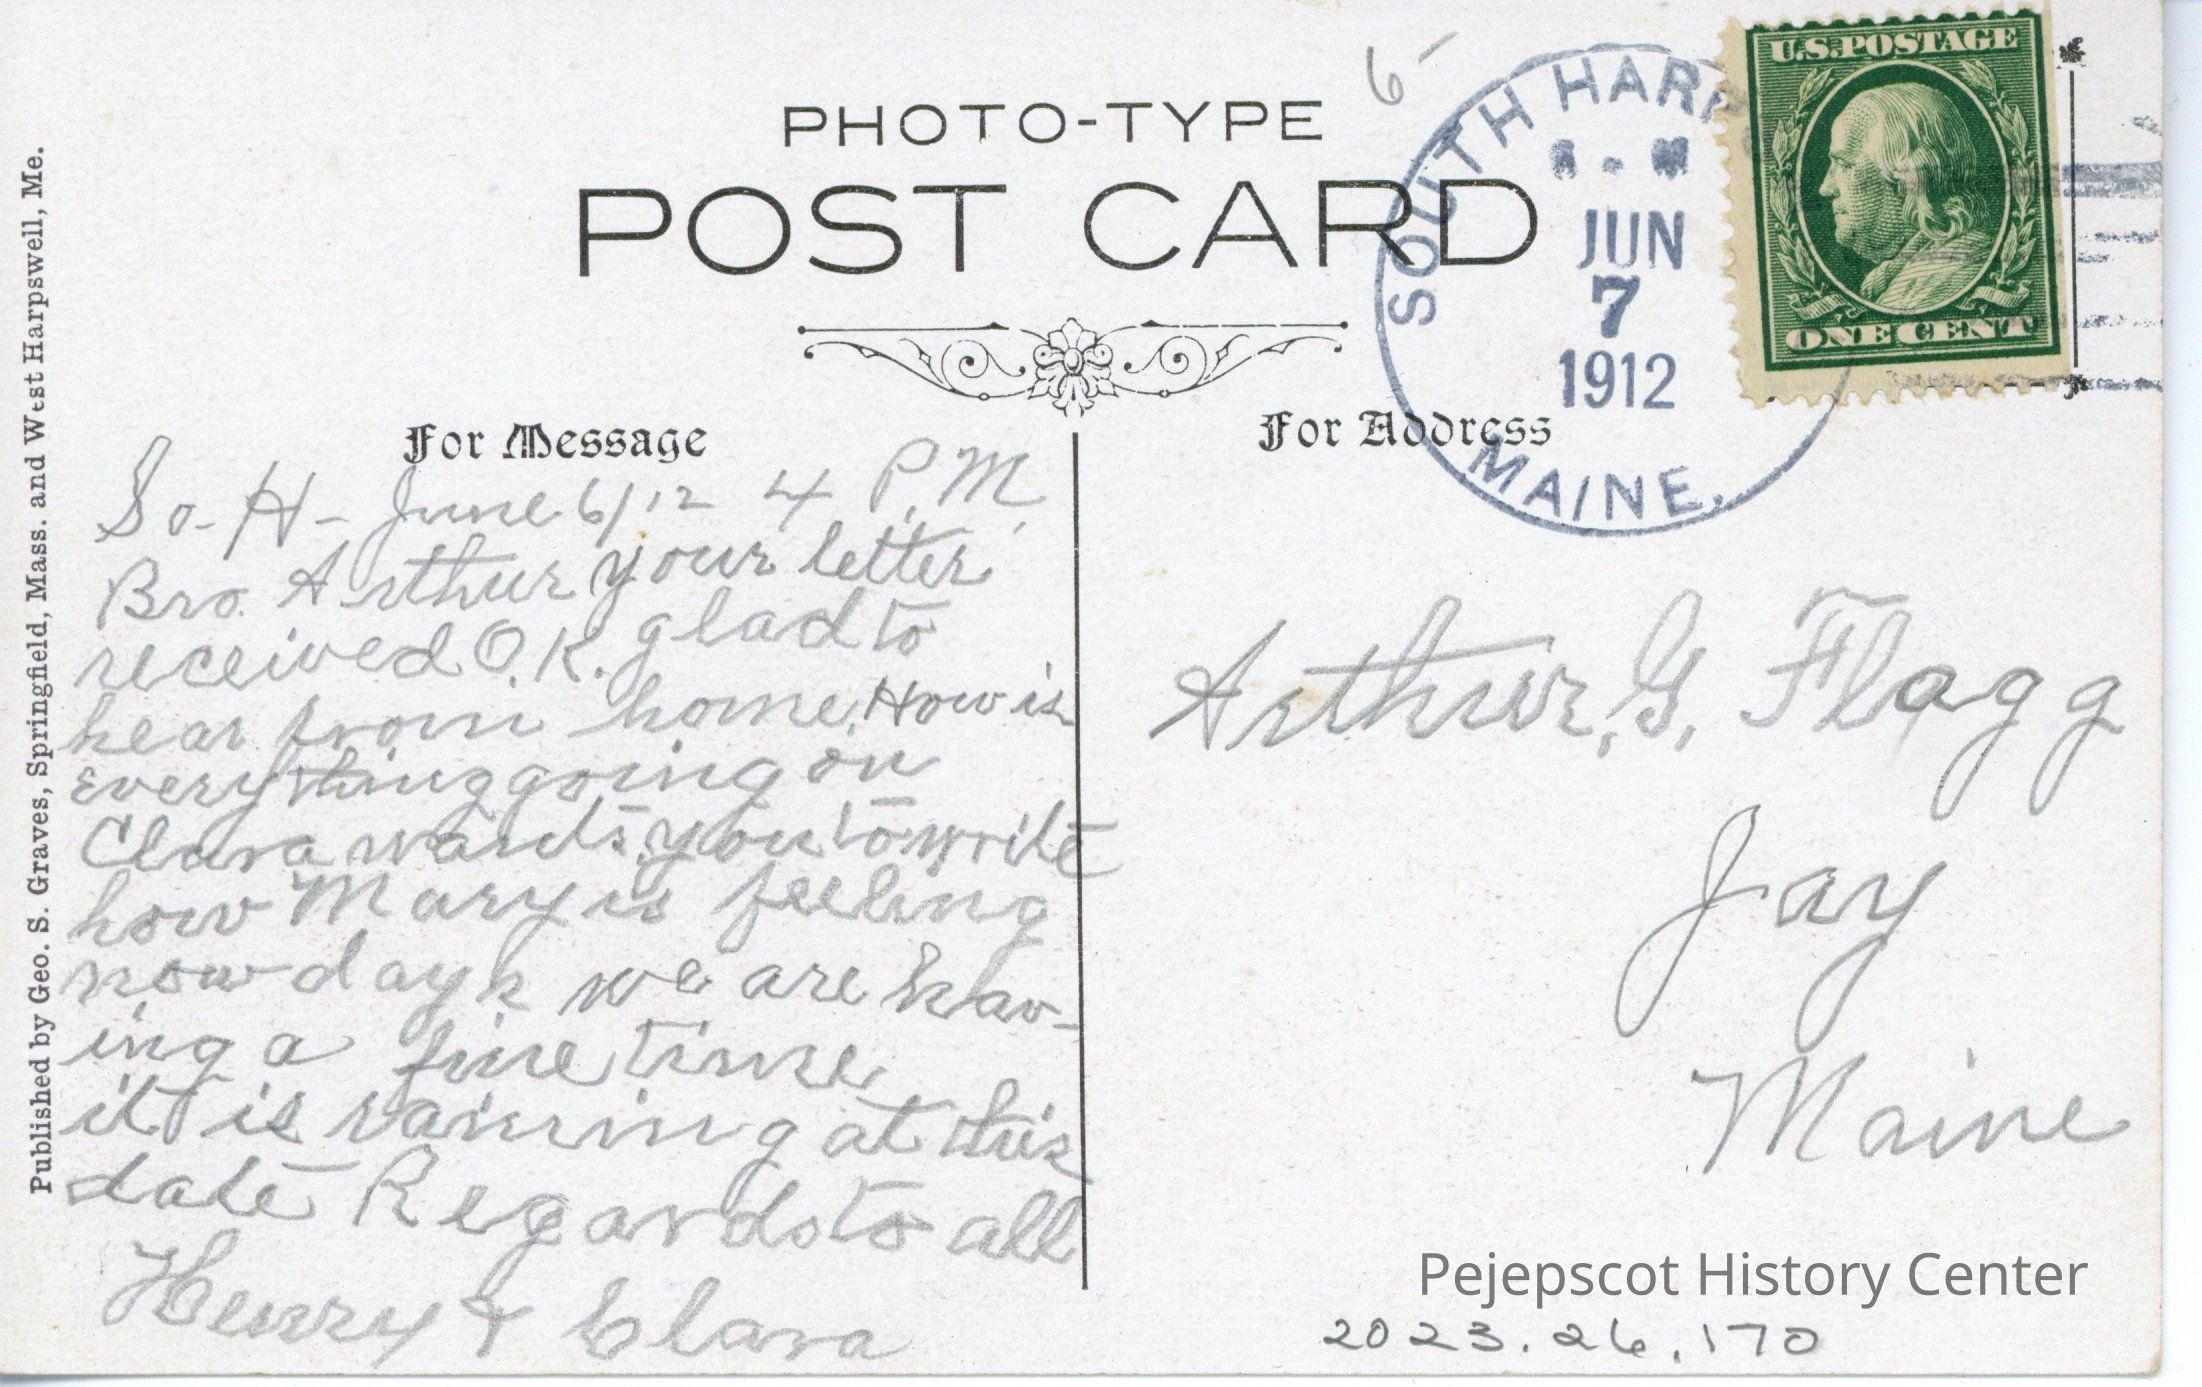 PHOTO-TYPE
POST CARD
For Message
For Address
Published by Geo. S. Graves, Springfield, Mass. and West Harpswell, Me.
6-
SOUTH HARP
A-M
JUN
7
1912
MAINE.
U.S. POSTAGE
ONE CENT
So-H- June 6/12 4 P.M.
Bro. Arthur your letter
received O.K. glad to
hear from home. How is
everything going on
Clara wants you to write
how Mary is feeling
now days we are hav-
ing a fine time
it is raining at this
date Regards to all
Henry & Clara
Arthur, G, Flagg
Jay
Maine
Pejepscot History Center
2023.26.170